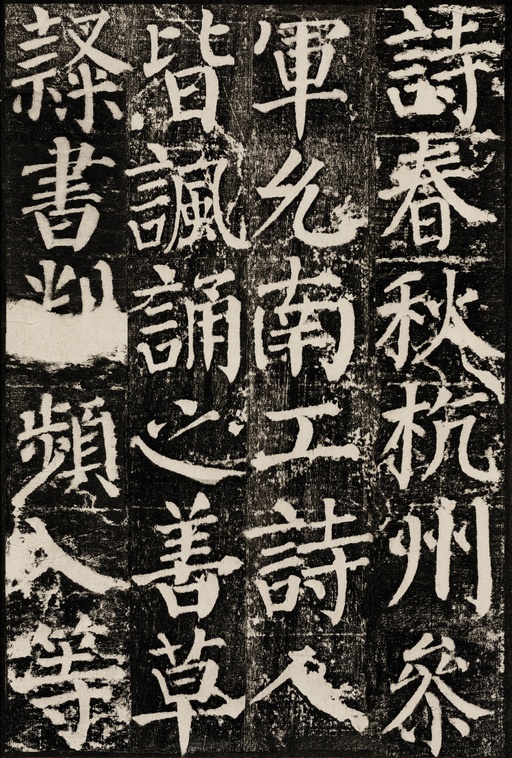 詩春秋杭州參
軍允南工詩人
皆諷誦之善草
隸書判頻入等